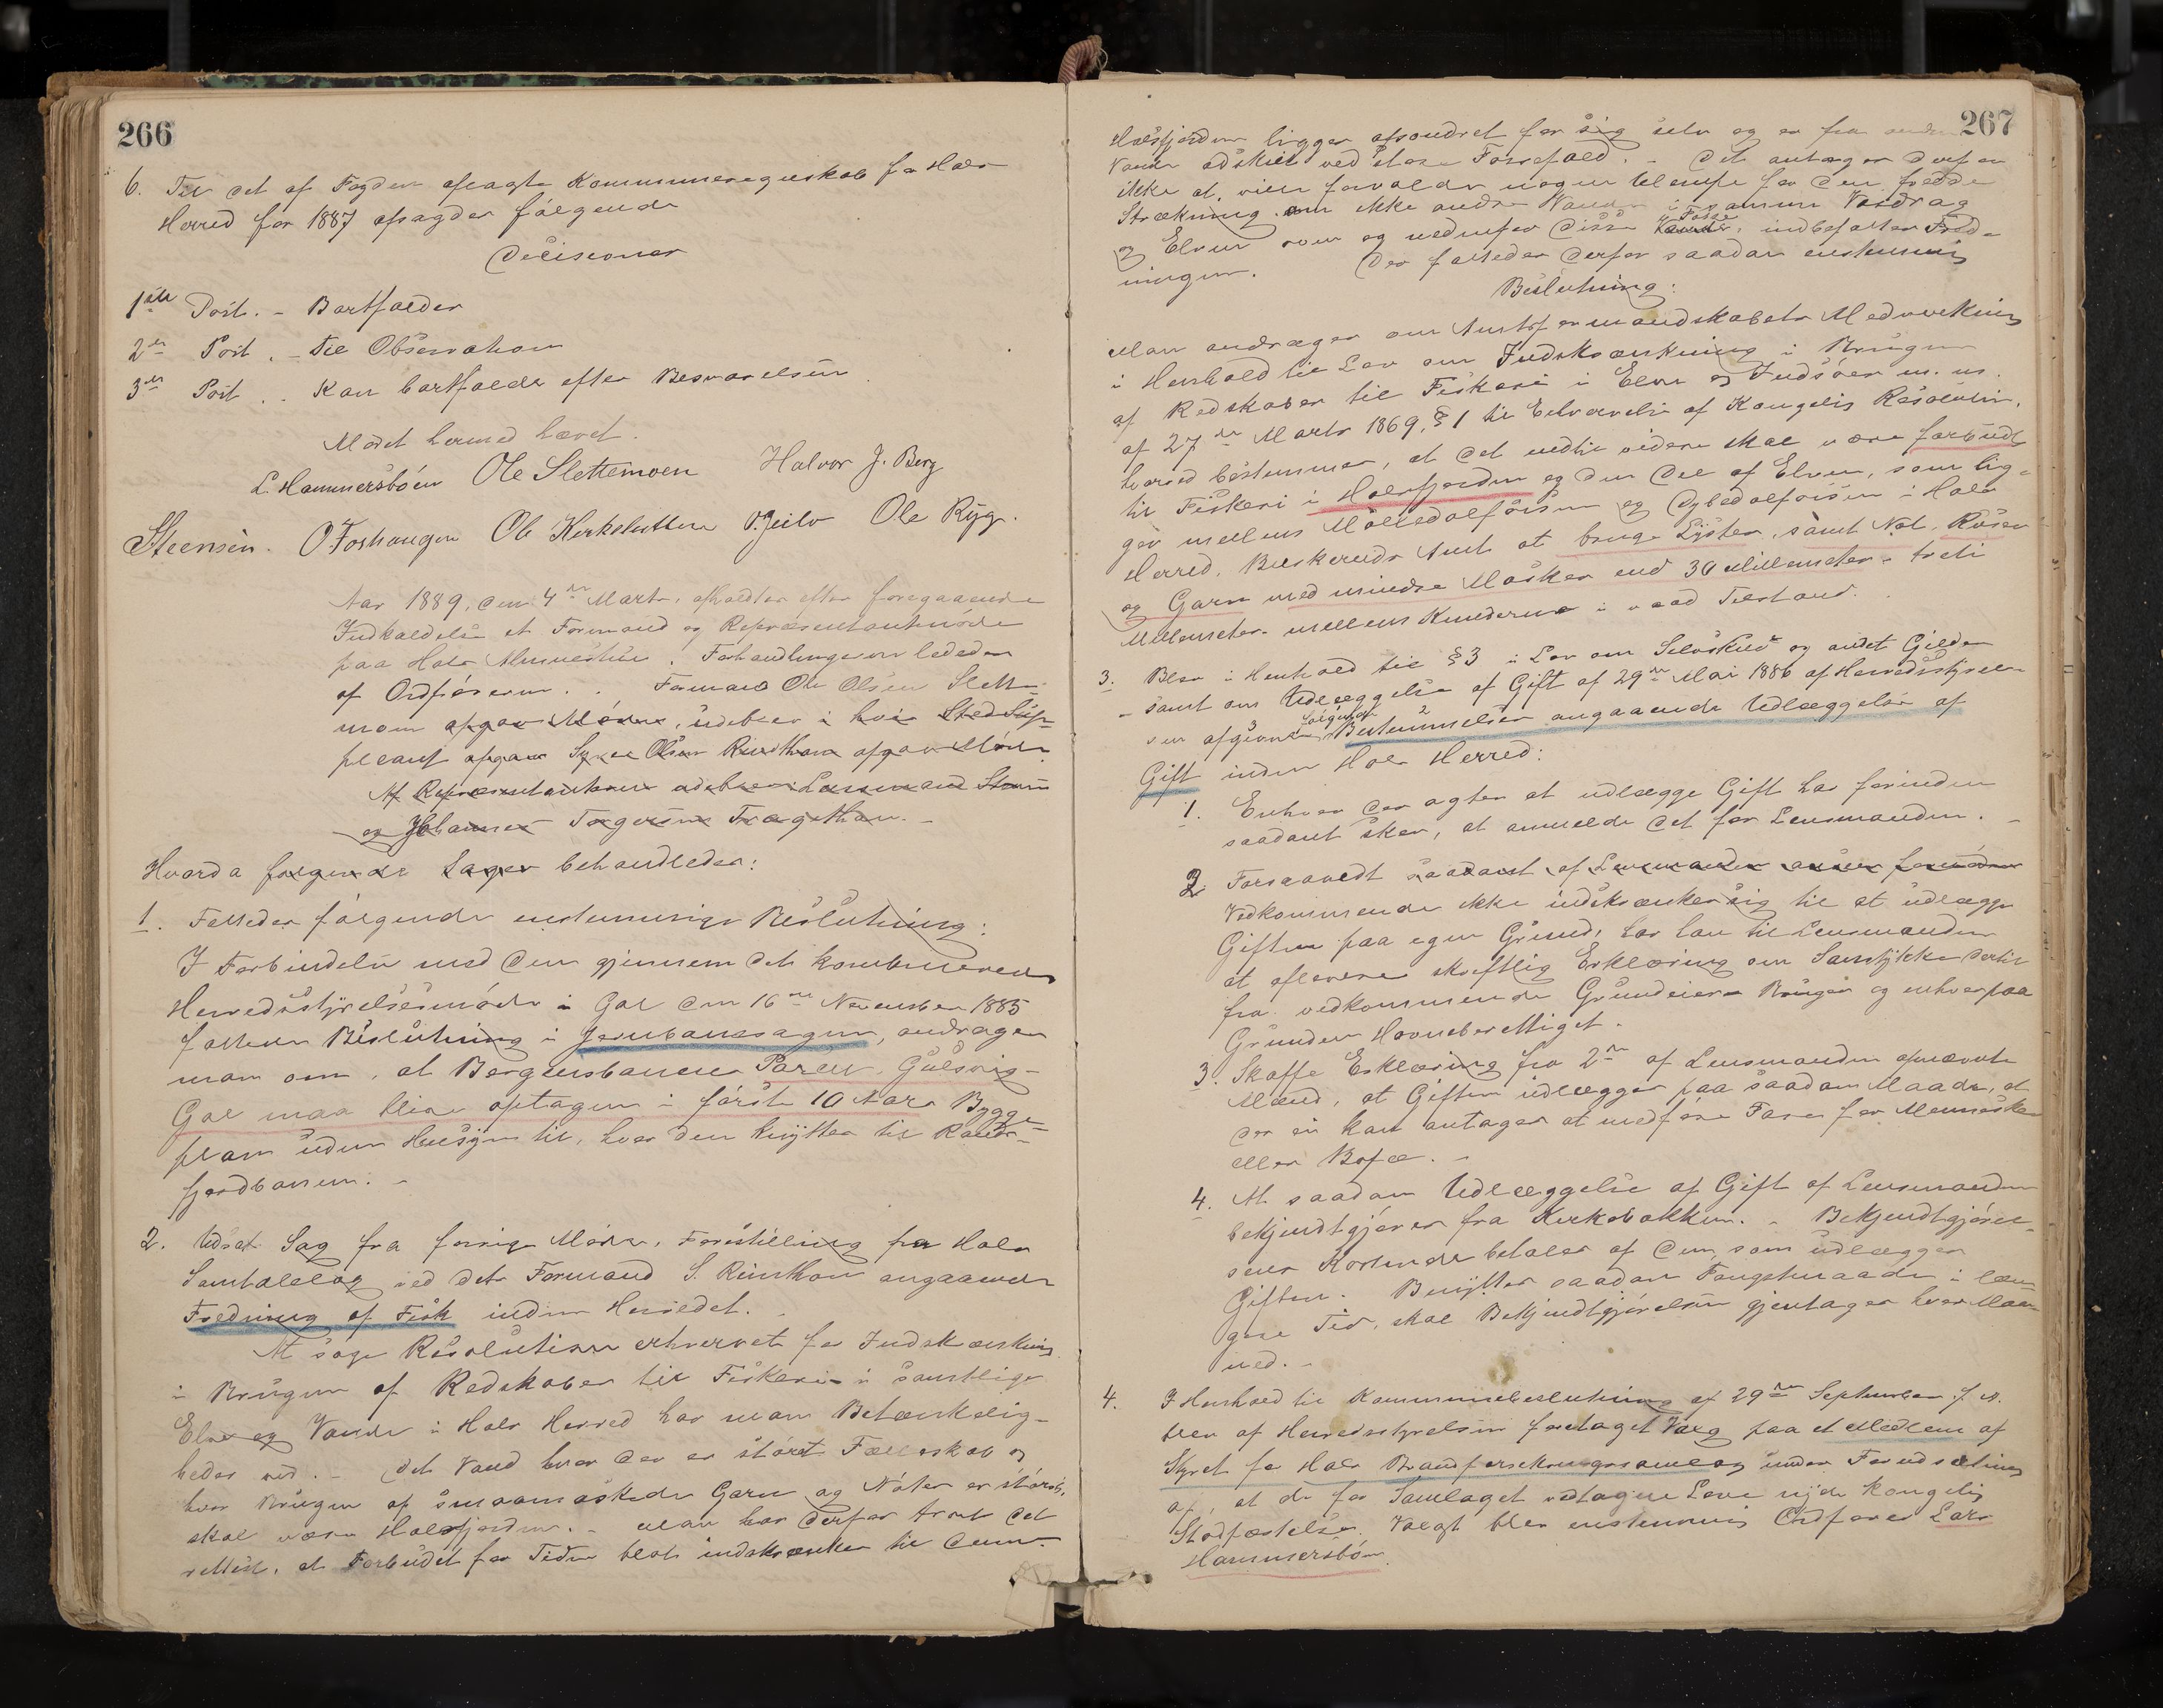 266
6. Til det af Fogden aflagte Kommuneregnskab for Hols
Herred for 1887 afsagdes følgende
Decisioner
1ste Post. - Bortfalder
2den Post. - Til Observation
3die Post. - Kan bortfalde efter Besvarelsen.
Mødet hermed hævet.
L. Hammersbøen Ole Slettemoen Halvor J. Berg
Steensen. O Foshaugen Ole Kirkeslutten Ole Ryg.
Aar 1889, den 4de Marts, afholdtes efter foregaaende
Indkaldelse et Formand og Repræsentantmøde
paa Hols Almueskole. Forhandlingerne lededes
af Ordføreren. Formand Ole Olsen Slette-
moen afgav Møde, udeblev i hvis Sted Sup-
pleant Olsen afgav Møde.
Af Repræsentanterne udebleve Lensmand
og Johannes Torgersen Trægethon. -
Hvorda følgende Sager behandledes:
1. Fattedes følgende enstemmige Beslutning:
I Forbindelse med den gjennem det kombinerede
Herredsstyrelsesmøde i Gol den 16de November 1885
fattede Beslutning i Jernbanesagen, andrager
man om, at Bergensbanens Parcel Gulsvig-
Gol maa blive optagen i første 10 Aars Bygge-
plan uden Hensyn til, hvor den knyttes til Rands-
fjordbanen. -
2. Udsat Sag fra forrige Møde, Forestilling fra Hols
Samtalelag ved dets Formand S. Rinsthon angaaende
Fredning af Fisk inden Herredet. -
At søge Resolution erhvervet for Indskrænkning
i Brugen af Redskaber til Fiskeri i samtlige
Elve og Vande i Hols Herred har man Betænkelig-
heder ved. - Det Vand hvor der er størst Fællesskab og
hvor Brugen af smaamaskede Garn og Nøter er størst,
skal være Holsfjorden. - Man har derfor troet det
rettest, at Forbudet for Tiden blot indskrænkes til denne.
267
Holsfjorden ligger afsondret for sig selv og er fra andre
Vande adskilt ved store Fossefald. - Det antages derfor
ikke at ville forvolde nogen Ulempe for den fredede
Strækning om ikke andre Vande i samme Vasdrag
og Elven som og nedenfor disse Fosse, indbefattes Fred-
ningen. Der fattedes derfor saadan enstemmig
Beslutning:
Man andrager om Amtsformandskabets Medvirkning
i Henhold til Lov om Indskrænkning i Brugen
af Redskaber til Fiskeri i Elve og Indsøer m. m.
af 27de Marts 1869, § 1 til Erhvervelse af Kongelig Resolution,
hvorved bestemmes, at det indtil videre skal være forbudt
til Fiskeri i Holsfjorden og den Del af Elven, som lig-
ger mellem Mølledalsfossen og Djupedalsfossen i Hols
Herred, Buskeruds Amt at bruge Lyster, samt Not, Ruser
og Garn med mindre Masker end 30 Millimeter - treti
Millimeter mellem Knuderne i vaad Tilstand.
3. Blev i Henhold til § 3 i Lov om Selvskud og andet Gilder
- samt om Udlæggelse af Gift af 29de Mai 1886 af Herredsstyrel-
sen afgivne følgende Bestemmelser angaaende Udlæggelse af
Gift inden Hols Herred:
1. Enhver der agter at udlægge Gift har forinden
saadant sker, at anmelde det for Lensmanden. -
2 Forsaavidt saadant af Lensmanden ansees fornødent
Vedkommende ikke indskrænker sig til at udlægge
Giften paa egen Grund, har han til Lensmanden
at aflevere skriftlig Erklæring om Samtykke dertil
fra vedkommende Grundeier Bruger og enhver paa
Grunden Havneberettiget.
3. Skaffe Erklæring fra 2de af Lensmanden opnævnte
Mænd, at Giften udlægges paa saadan Maade, at
der ei kan antages at medføre Fare for Mennesker
eller Bofæ. -
4. At saadan Udlæggelse af Gift af Lensmanden
bekjendtgjøres fra Kirkebakken. - Bekjendtgjørel-
sens Kostende betales af den, som udlægger
Giften. Benyttes saadan Fangstmaade i læn-
gere Tid, skal Bekjendtgjørelsen gjentages hver Maa-
ned. -
4. I Henhold til Kommunebeslutning af 29de September f. A.
blev af Herredsstyrelsen foretaget Valg paa et Medlem af
Styret for Hols Brandforsikringssamlag under Forudsætning
af, at de for Samlaget vedtagne Love nyde kongelig
Stadfæstelse. Valgt blev enstemmig Ordfører Lars
Hammersbøen.